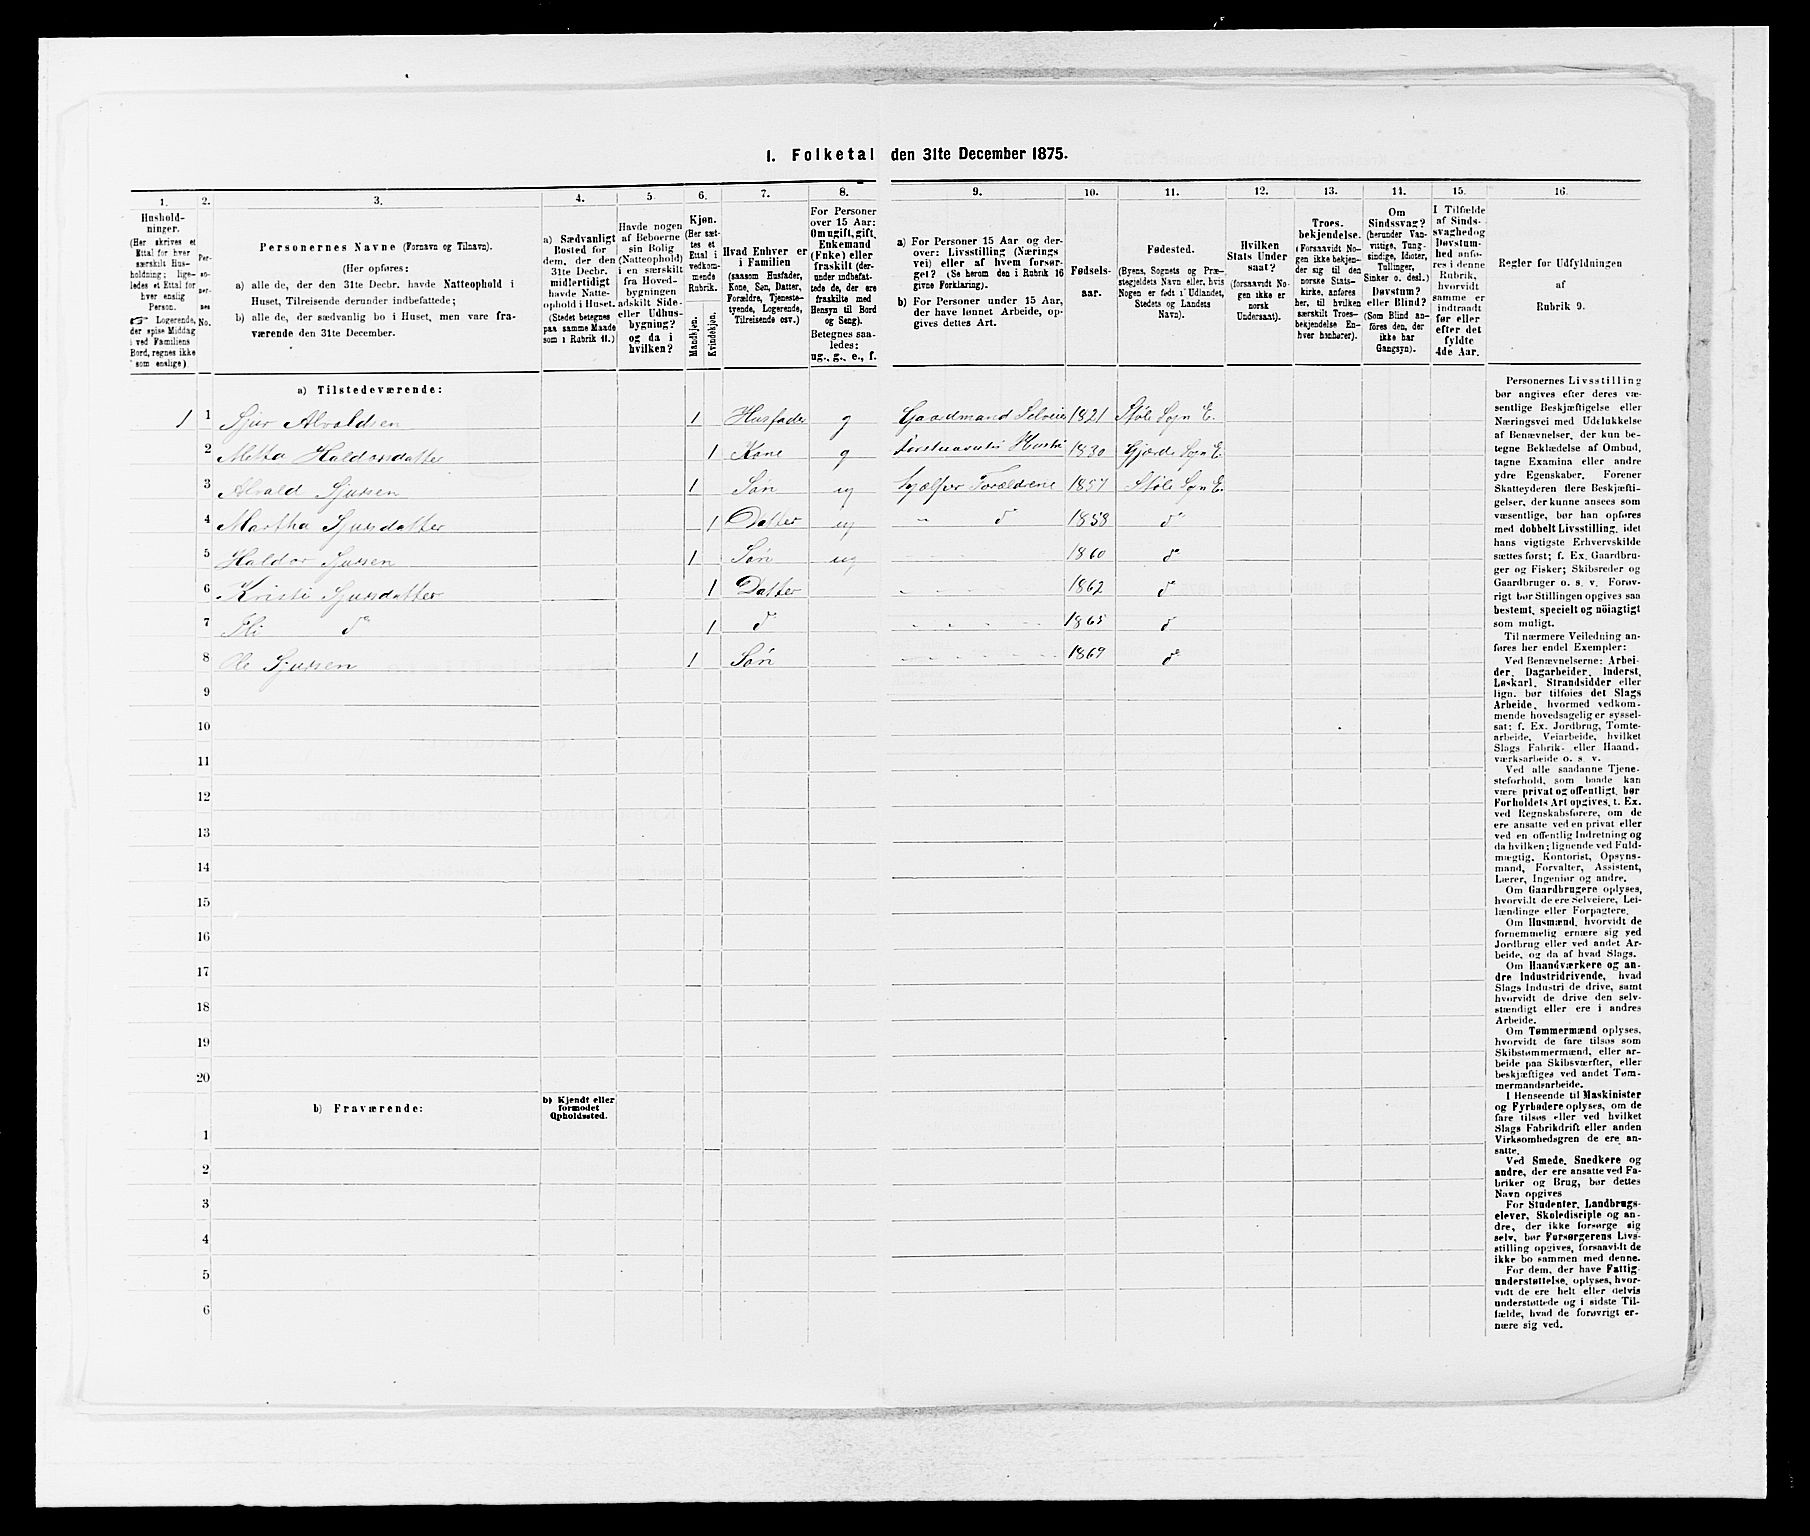 1. Folketal den 31te December 1875.
1. 2. 3. 4. 5. 6. 7. 8. 9. 10. 11. 12. 13. 14. 15. 16.
Hushold-
ninger.
(Her skrives et
Ettal for hver
særskilt Hus-
holdning; lige-
ledes et Ettal for
hver enslig
Person.
Logerende,
der spise Middag
i ved Familiens
Bord, regnes ikke
som enslige)
Per-
so-
ner-
nes
No.
Personernes Navne (Fornavn og Tilnavn).
(Her opføres:
a) alle de, der den 31te Decbr. havde Natteophold i
Huset, Tilreisende derunder indbefattede;
b) alle de, der sædvanlig bo i Huset, men vare fra-
værende den 31te December.
a) Sædvanligt
Bosted for
dem, der den
31te Decbr.
midlertidigt
havde Natte-
ophold i Huset.
(Stedet betegnes
paa samme Maade
som i Rubrik 11.)
Havde nogen
af Beboerne
sin Bolig
(Natteophold)
i en særskilt
fra Hoved-
bygningen
adskilt Side-
eller Udhus-
bygning?
og da i
hvilken?
Kjøn.
(Her sæt-
tes et
Ettal i
vedkom-
mende
Rubrik.
Mandkjøn.
Kvindekjøn.
Hvad Enhver er
i Familien
(saasom Husfader,
Kone, Søn, Datter,
Forældre, Tjeneste-
tyende, Logerende,
Tilreisende osv.)
For Personer
over 15 Aar:
Om ugift, gift,
Enkemand
(Enke) eller
fraskilt (der-
under indbefat-
tede de, der ere
fraskilte med
Hensyn til Bord
og Seng).
Betegnes saa-
ledes:
ug., g., e., f.
a) For Personer 15 Aar og der-
over: Livsstilling (Nærings
vei) eller af hvem forsør-
get? (Se herom den i Rubrik 16
givne Forklaring).
b) For Personer under 15 Aar,
der have lønnet Arbeide, op-
gives dettes Art.
Fødsels-
aar.
Fødested.
(Byens, Sognets og Præ-
stegjeldets Navn eller, hvis
Nogen er født i Udlandet,
Stedets og Landets
Navn).
Hvilken
Stats Under
saat?
(forsaavidt No-
gen ikke er
norsk
Undersaat).
Troes-
bekjendelse.
(Forsaavidt No-
gen ikke bekjen-
der sig til den
norske Stats-
kirke, anføres
her, til hvilken
særskilt Troes-
bekjendelse En-
hver henhører).
Om
Sindssvag?
(herunder Van-
vittige, Tung-
sindige, Idioter,
Tullinger,
Sinker o. desl.)
Døvstum?
eller Blind?
(Som Blind an-
føres den, der
ikke har
Gangsyn).
I Tilfælde
af Sinds-
svaghed og
Døvstum-
hed anfø-
res i denne
Rubrik,
hvorvidt
samme er
indtraadt
før eller
efter det
fyldte
4de Aar.
Regler for Udfyldningen
af
Rubrik 9.
a) Tilstedeværende:
1 1 Sjur Alvaldsen 1 Husfader g Gaardmand Selveier 1821 Støle Sogn E.
2 Metta Haldorsdatter 1 Kone g Hustru 1830 Gjærde Sogn E.
3 Alvald Sjursen 1 Søn ug hjælper Forældrene 1857 Støle Sogn E.
4 Martha Sjursdatter 1 Datter ug " do 1858 do
5 Haldor Sjursen 1 Søn ug 1860 do
6 Kristi Sjursdatter 1 Datter 1862 do
7 do 1 do 1865 do
8 Ole Sjursen 1 Søn 1869 do
9
10
11
12
13
14
15
16
17
18
19
20
b) Fraværende:
b) Kjendt eller
formodet
Opholdssted.
1
2
3
4
5
6
Personernes Livsstilling
bør angives efter deres væ-
sentlige Beskjæftigelse eller
Næringsvei med Udelukkelse
af Benævnelser, der kun be-
tegne Beklædelse af Ombud,
tagne Examina eller andre
ydre Egenskaber. Forener
Skatteyderen flere Beskjæfti-
gelser, der kunne ansees som
væsentlige, bør han opføres
med dobbelt Livsstilling, idet
hans vigtigste Erhvervskilde
sættes først; f. Ex. Gaardbru-
ger og Fisker; Skibsreder og
Gaardbruger o. s. v. Forøv-
rigt bør Stillingen opgives saa
bestemt, specielt og nöiagtigt
som muligt.
Til nærmere Veiledning an-
føres her endel Exempler:
Ved Benævnelserne: Arbei-
der, Dagarbeider, Inderst,
Løskarl, Strandsidder eller
lign. bør tilføies det Slags
Arbeide, hvormed vedkom-
mende hovedsagelig er syssel-
sat: f. Ex. Jordbrug, Tomte-
arbeide, Veiarbeide, hvilket
Slags Fabrik- eller Haand-
værksarbeide o. s. v.
Ved alle saadanne Tjene-
steforhold, som baade kan
være privat og offentligt, bør
Forholdets Art opgives, t. Ex.
ved Regnskabsførere, om de
ere ansatte ved en privat eller
ved en offentlig Indretning og
da hvilken; lignende ved Fuld-
mægtig, Kontorist, Opsyns-
mand, Forvalter, Assistent,
Lærer, Ingeniør og andre.
Om Gaardbrugere oplyses,
hvorvidt de ere Selveiere, Lei-
lændinge eller Forpagtere.
Om Husmænd, hvorvidt de
fornemmelig ernære sig ved
Jordbrug eller ved andet Ar-
beide, og da af hvad Slags.
Om Haandværkere og an-
dre Industridrivende, hvad
Slags Industri de drive, samt
hvorvidt de drive den selv-
stændigt eller ere i andres
Arbeide.
Om Tømmermænd oplyses,
hvorvidt de fare tilsøs som
Skibstømmermænd, eller ar-
beide paa Skibsværfter, eller
beskjæftiges ved andet Tøm-
mermandsarbeide.
I Henseende til Maskinister
og Fyrbødere oplyses, om de
fare tilsøs eller ved hvilket
Slags Fabrikdrift eller anden
Virksomhedsgren de ere an-
satte.
Ved Smede, Snedkere og
andre, der ere ansatte ved Fa-
briker og Brug, bør dettes
Navn opgives
For Studenter, Landbrugs-
elever, Skoledisciple og an-
dre, der ikke forsørge sig
selv, bør Forsørgerens Livs-
stilling opgives, forsaavidt de
ikke bo sammen med denne.
For dem, der have Fattig-
understøttelse, oplyses, hvor-
vidt de ere helt eller delvis
understøttede og i sidste Til-
fælde, hvad de forøvrigt er-
nære sig ved.